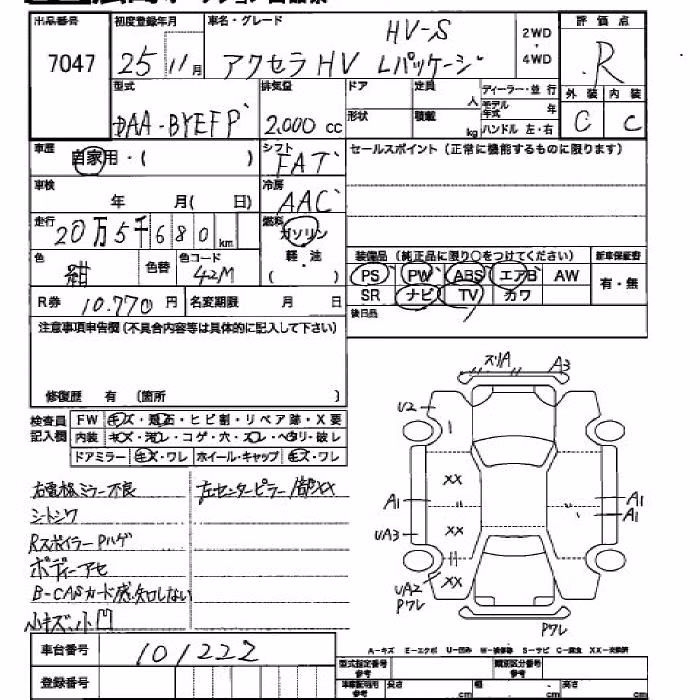 出品番号 初度登録年月 車名・グレード 評価点
HV-S 2WD・4WD
7047 25 11月 アクセラHV Lパッケージ R
型式 排気量 ドア 定員 人 ディーラー・並行 外装 内装
モデル年式 年
DAA-BYEFP 2,000 cc 形状 積載 kg ハンドル 左・右 C C
車歴 自家用・( ) シフト FAT セールスポイント (正常に機能するものに限ります)
車検 年 月( 日) 冷房 AAC
走行 20万5千680km 燃料 ガソリン
軽・油
( )
色 紺 色替 色コード 42M
装備品 (純正品に限り○をつけてください) 新車保証書
PS PW ABS エアB AW 有・無
SR ナビ TV カワ
R券 10.770円 名変期限 月 日
後日品
注意事項申告欄 (不具合内容等は具体的に記入して下さい)
修復歴 有 (箇所 )
検査員記入欄 FW キズ・飛石・ヒビ割・リペア跡・X要
内装 キズ・汚レ・コゲ・穴・スレ・ヘタリ・破レ
ドアミラー キズ・ワレ ホイール・キャップ キズ・ワレ
右電格ミラー不良 左センターピラー1部XX
シートシワ
RスポイラーPハゲ
ボディーアセ
B-CASカード感知しない
小キズ、小凹
スリA A3
U2
XX
A1 A1
A1
UA3 XX
UA2 XX
Pワレ
Pワレ
A-キズ E-エクボ U-凹み W-補修跡 S-サビ C-腐食 XX-交換済
車台番号 101222
型式指定番号 参考 類別区分番号 参考
登録番号
車庫証明用 参考 長さ cm 幅 cm 高さ cm